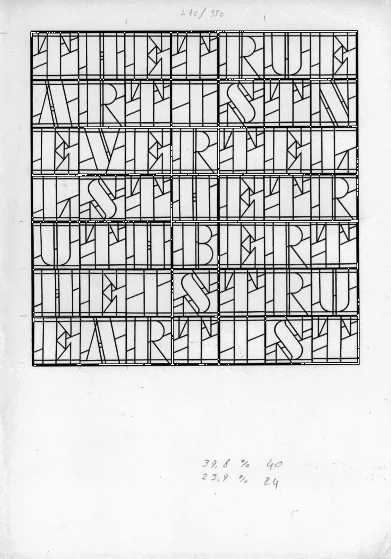 THETRUE
ARTISTN
EVERTEL
LSTHETR
UTHBERT
HEISTRU
EARTIST
39,8 % 40
23,9 % 24